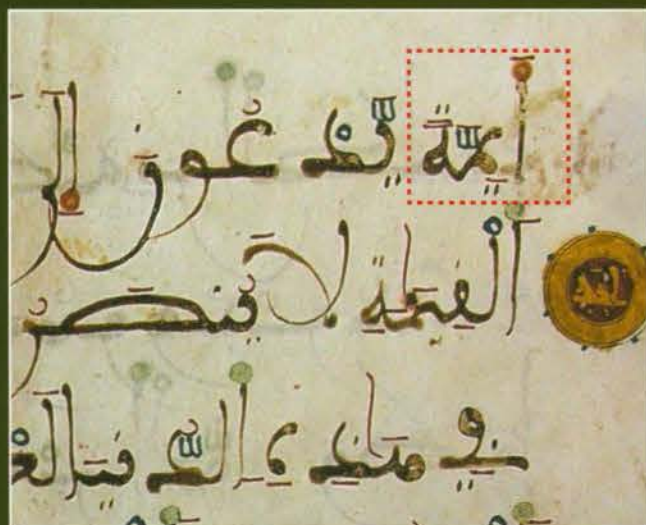 أيِمَّةً يَدْعُونَ إلى
ٱلْقِيَٰمَةِ لَا يُنصَر
فِي هَٰذِهِ ٱلدُّنْيَا لَعْ